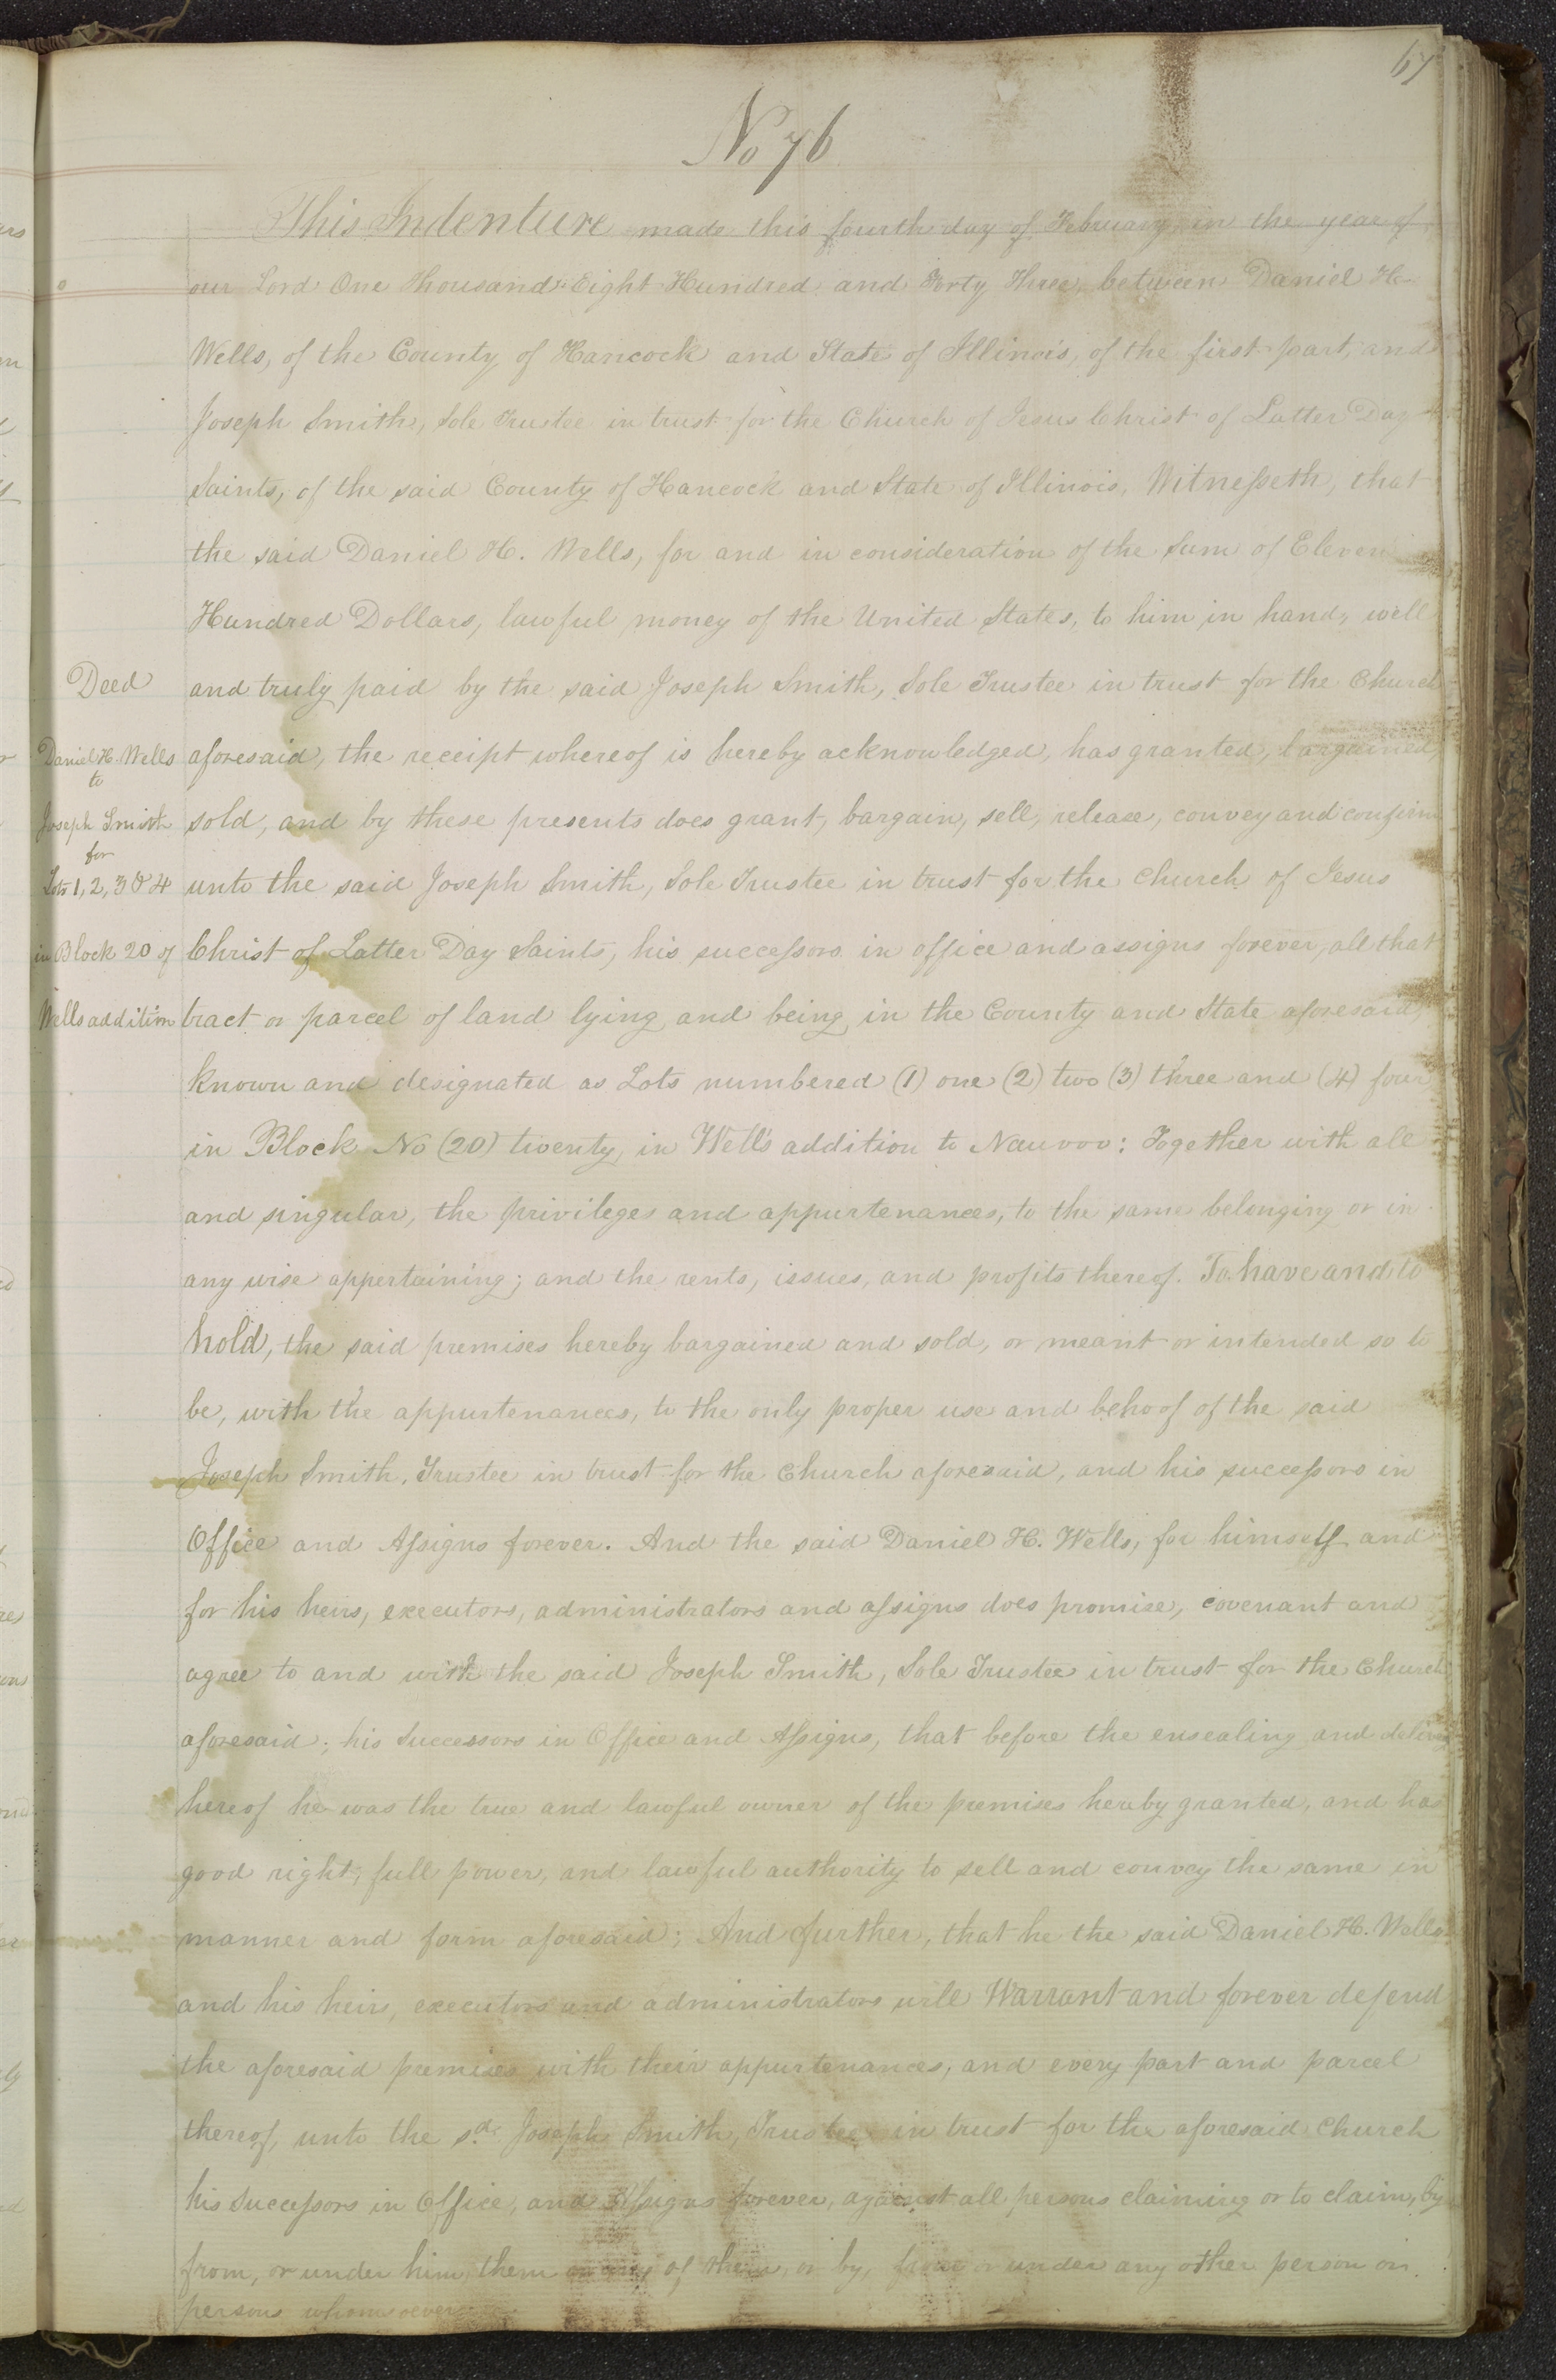 67
No 76
This Indenture made this fourth day of February in the year of
our Lord One Thousand Eight Hundred and Forty Three, between Daniel H.
Wells, of the County of Hancock and State of Illinois, of the first part, and
Joseph Smith, Sole Trustee in trust for the Church of Jesus Christ of Latter Day
Saints, of the said County of Hancock and State of Illinois, Witnesseth, that
the said Daniel H. Wells, for and in consideration of the Sum of Eleven
Hundred Dollars, lawful money of the United States, to him in hand, well
Deed
and truly paid by the said Joseph Smith, Sole Trustee in trust for the Church
Daniel H. Wells
to
Joseph Smith
for
Lots 1, 2, 3 & 4
in Block 20 of
Wells addition
aforesaid, the receipt whereof is hereby acknowledged, has granted, bargained,
sold, and by these presents does grant, bargain, sell, release, convey and confirm
unto the said Joseph Smith, Sole Trustee in trust for the Church of Jesus
Christ of Latter Day Saints, his successors in office and assigns forever, all that
tract or parcel of land lying and being in the County and State aforesaid,
known and designated as Lots numbered (1) one (2) two (3) three and (4) four
in Block No (20) twenty, in Wells addition to Nauvoo: Together with all
and singular, the privileges and appurtenances, to the same belonging or in
any wise appertaining; and the rents, issues, and profits thereof. To have and to
hold, the said premises hereby bargained and sold, or meant or intended so to
be, with the appurtenances, to the only proper use and behoof of the said
Joseph Smith, Trustee in trust for the Church aforesaid, and his successors in
Office and Assigns forever. And the said Daniel H. Wells, for himself and
for his heirs, executors, administrators and assigns does promise, covenant and
agree to and with the said Joseph Smith, Sole Trustee in trust for the Church
aforesaid; his Successors in Office and Assigns, that before the ensealing and delivery
hereof he was the true and lawful owner of the premises hereby granted, and has
good right, full power, and lawful authority to sell and convey the same in
manner and form aforesaid; And further, that he the said Daniel H. Wells
and his heirs, executors and administrators will Warrant and forever defend
the aforesaid premises with their appurtenances, and every part and parcel
thereof, unto the sd. Joseph Smith, Trustee in trust for the aforesaid Church
his Successors in Office, and Assigns forever, against all persons claiming or to claim, by
from, or under him, them or any of them, or by, from or under any other person or
persons whomsoever